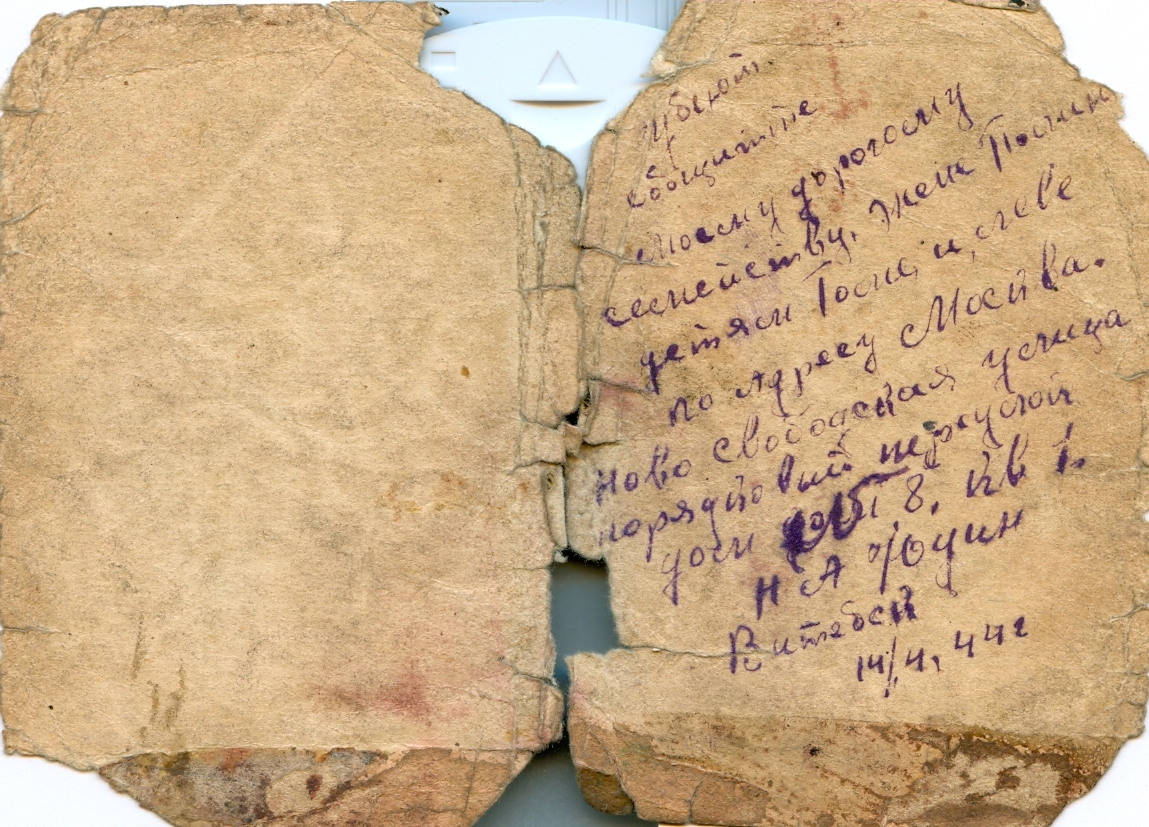 убьют.
сообщитте
моему дорогому
семейству. жене Полин
детям Тоони и, леве
по Адресу Москва.
Ново свободская улица
порядковый переулой
дом 8, кв 1.
Н А Юдин
Витебск
14/4, 44г